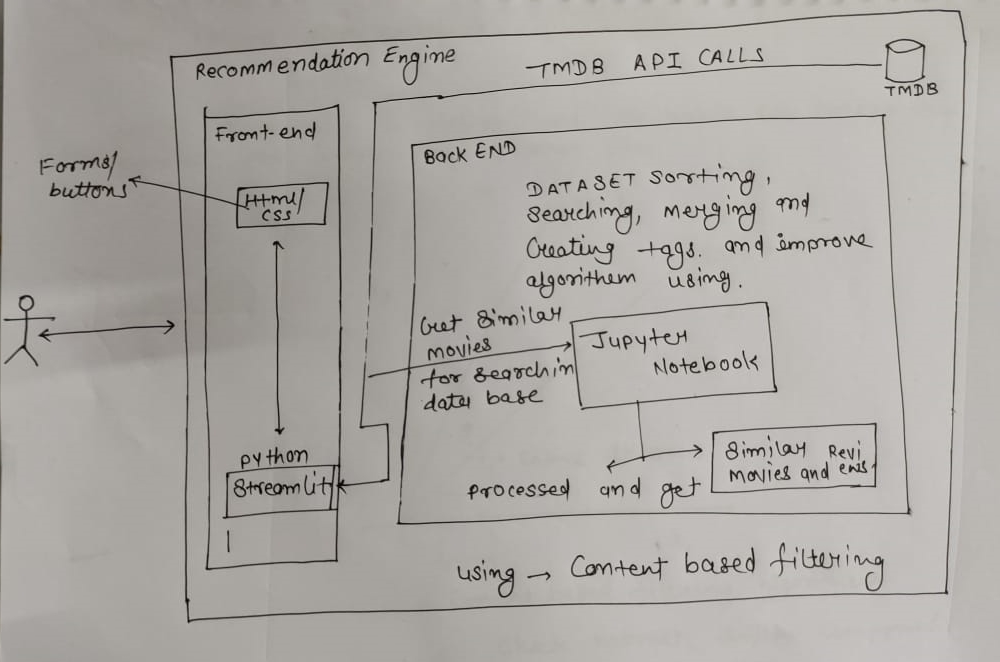 Recommendation Engine
TMDB API CALLS
TMDB
Front-end
Forms/
buttons
Html/
CSS
python
Streamlit
Back END
DATASET sorting,
searching, merging and
Creating tags. and improve
algorithem using.
Get similar
movies
for searchin
data base
Jupyter
Notebook
processed and get
Similar Revi
movies and ews.
using → Content based filtering